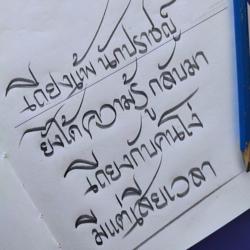 เถียงแพ้นักปราชญ์
ยังได้ความรู้กลับมา
เถียงกับคนโง่
มีแต่เสียเวลา